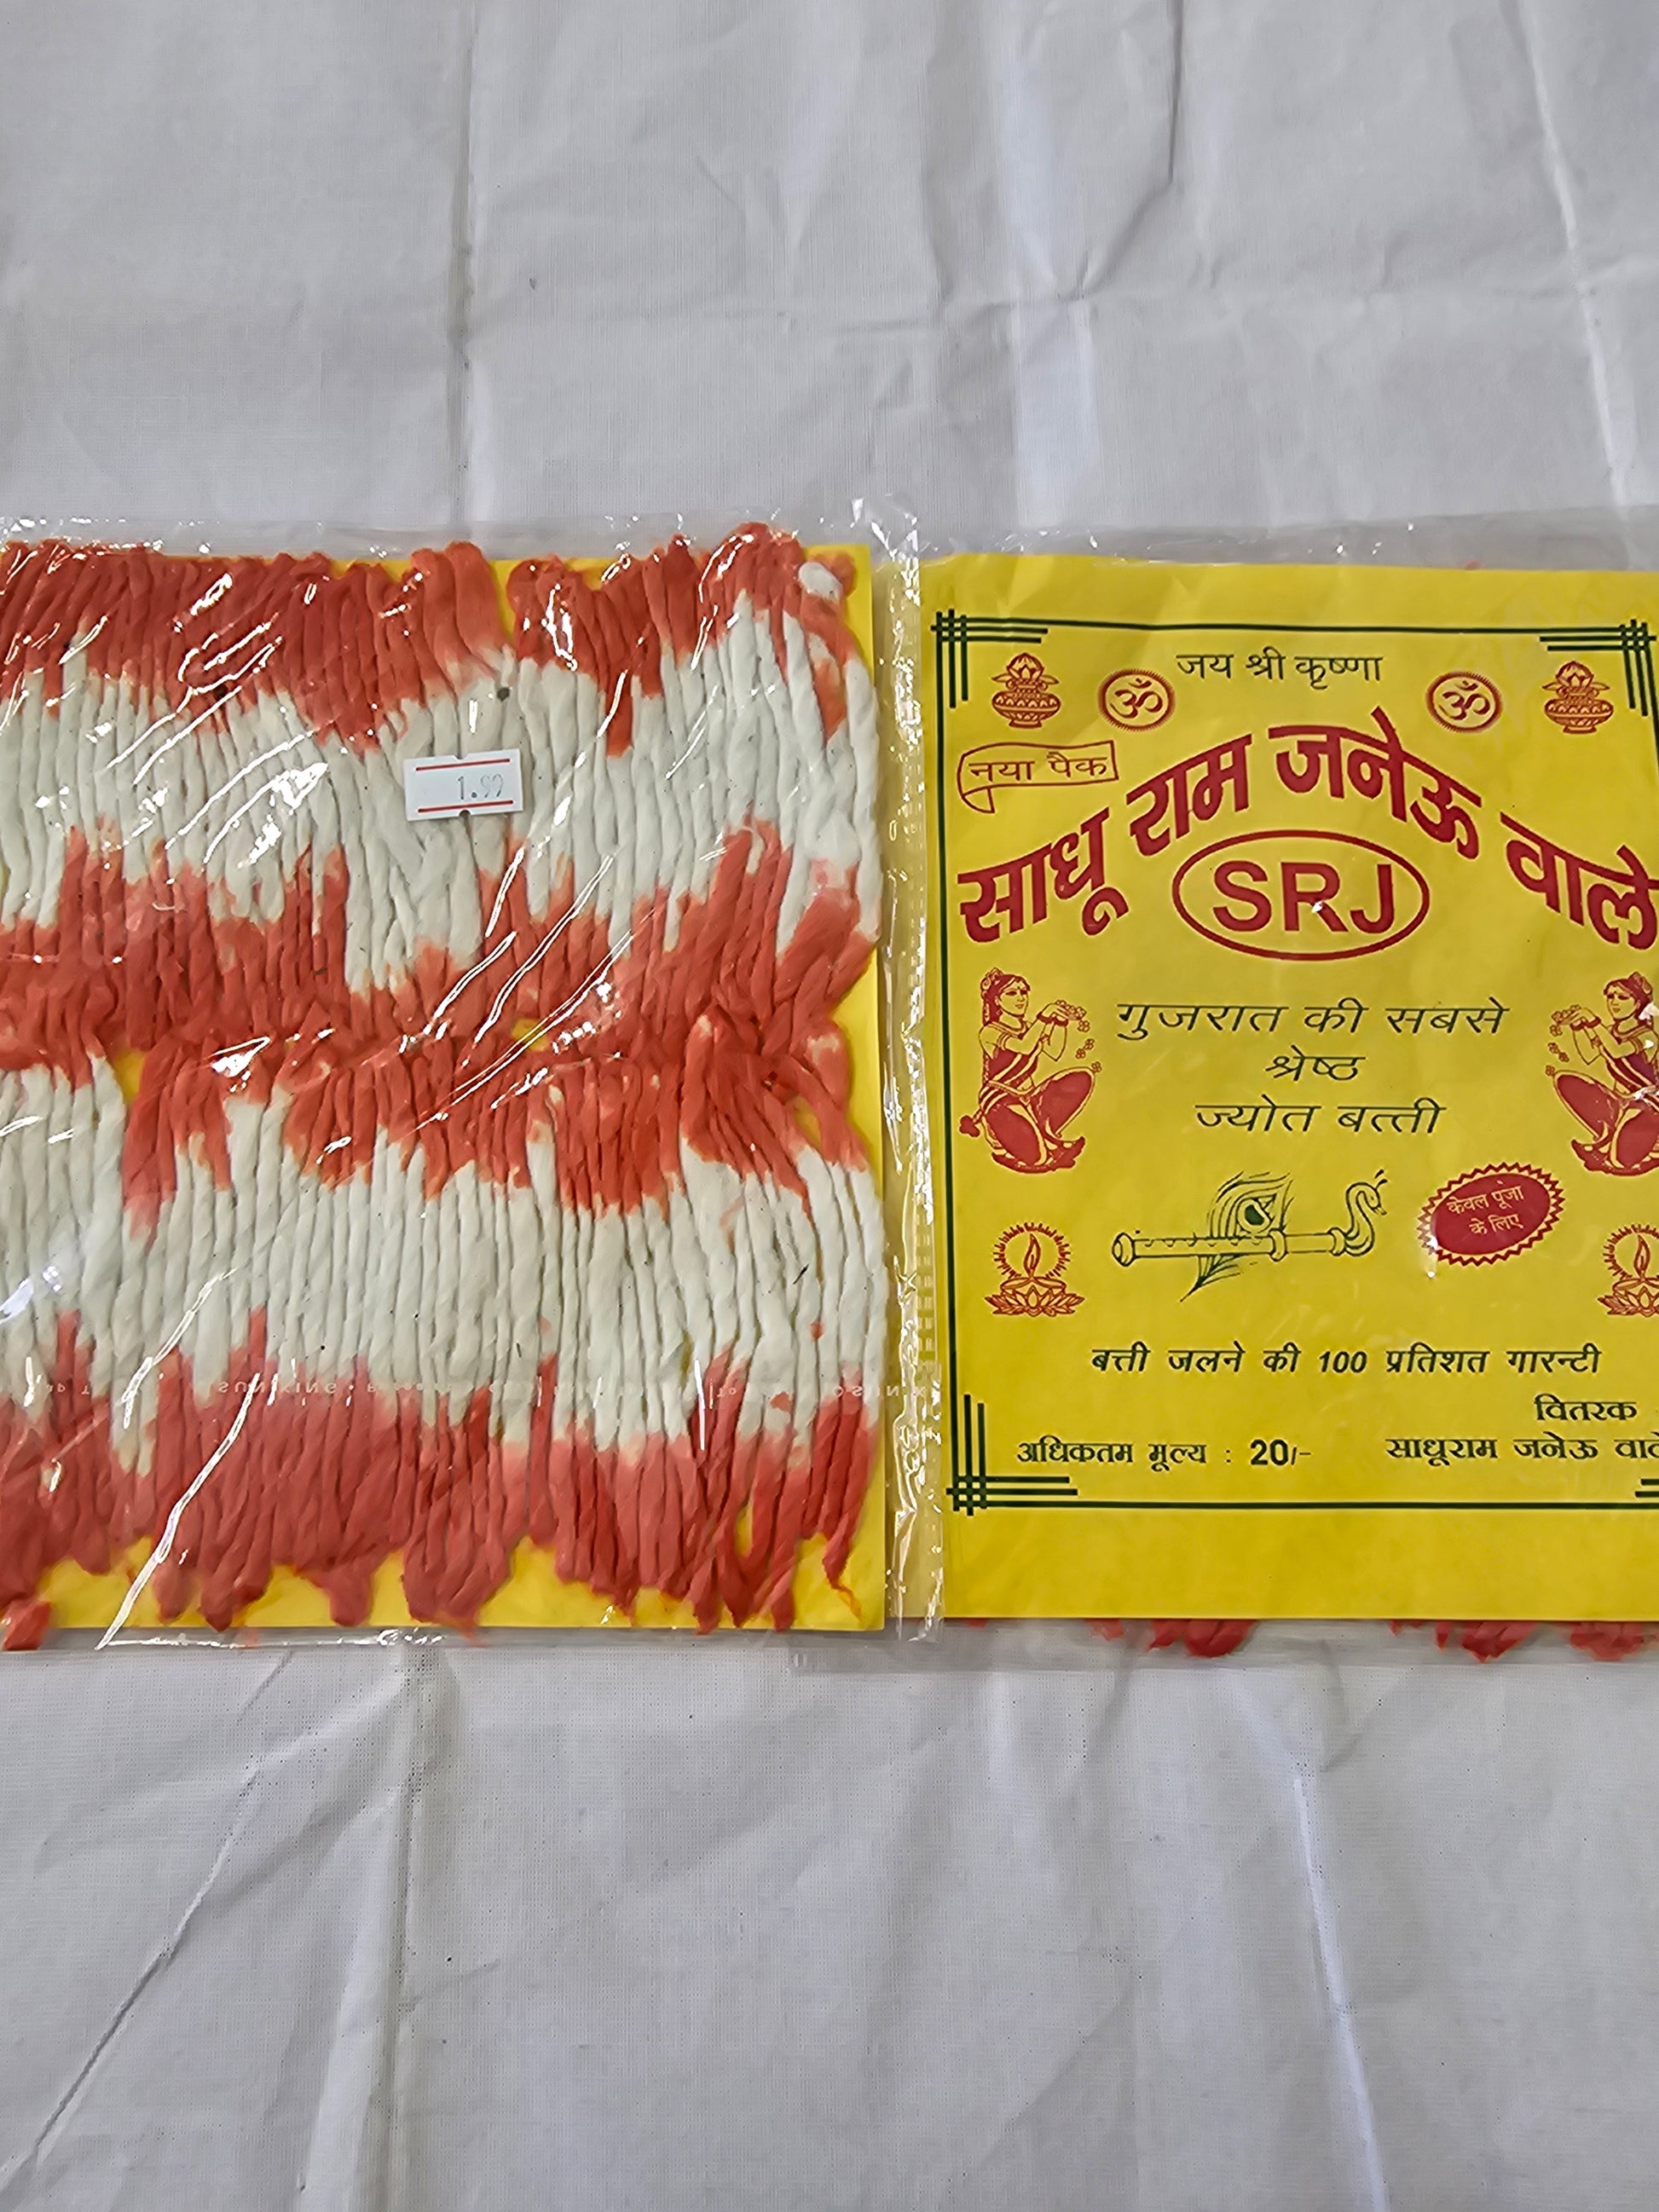 1.99
जय श्री कृष्णा
ॐ
ॐ
नया पैक
साधू राम जनेऊ वाले
SRJ
गुजरात की सबसे
श्रेष्ठ
ज्योत बत्ती
केवल पूजा
के लिए
बत्ती जलने की 100 प्रतिशत गारन्टी
वितरक
अधिकतम मूल्य : 20/-
साधूराम जनेऊ